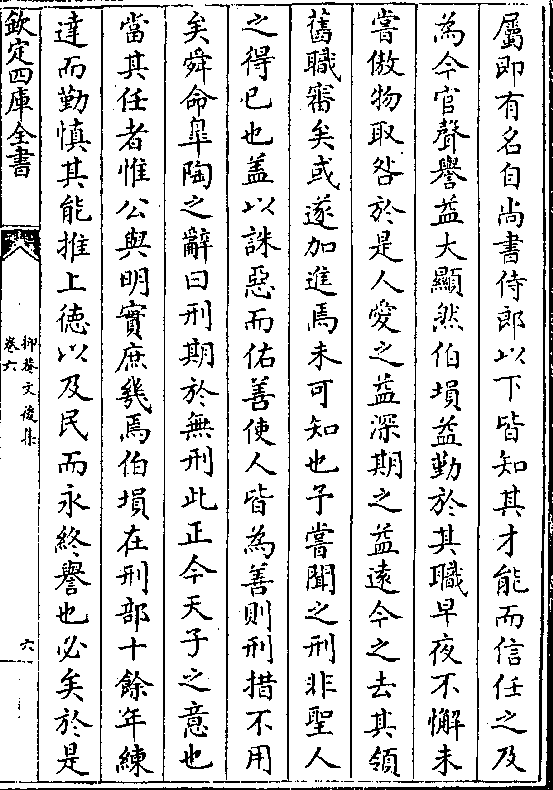 屬即有名自尚書侍郎以下皆知其才能而信任之及
為今官聲譽益大顯然伯塤益勤於其職早夜不懈未
嘗傲物取咎於是人愛之益深期之益遠今之去其領
舊職審矣或遂加進焉未可知也予嘗聞之刑非聖人
之得已也蓋以誅惡而佑善使人皆為善則刑措不用
矣舜命臯陶之辭曰刑期於無刑此正今天子之意也
當其任者惟公與明實庶幾焉伯塤在刑部十餘年練
達而勤慎其能推上德以及民而永終譽也必矣於是
欽定四庫全書
抑菴文後集
卷六
六